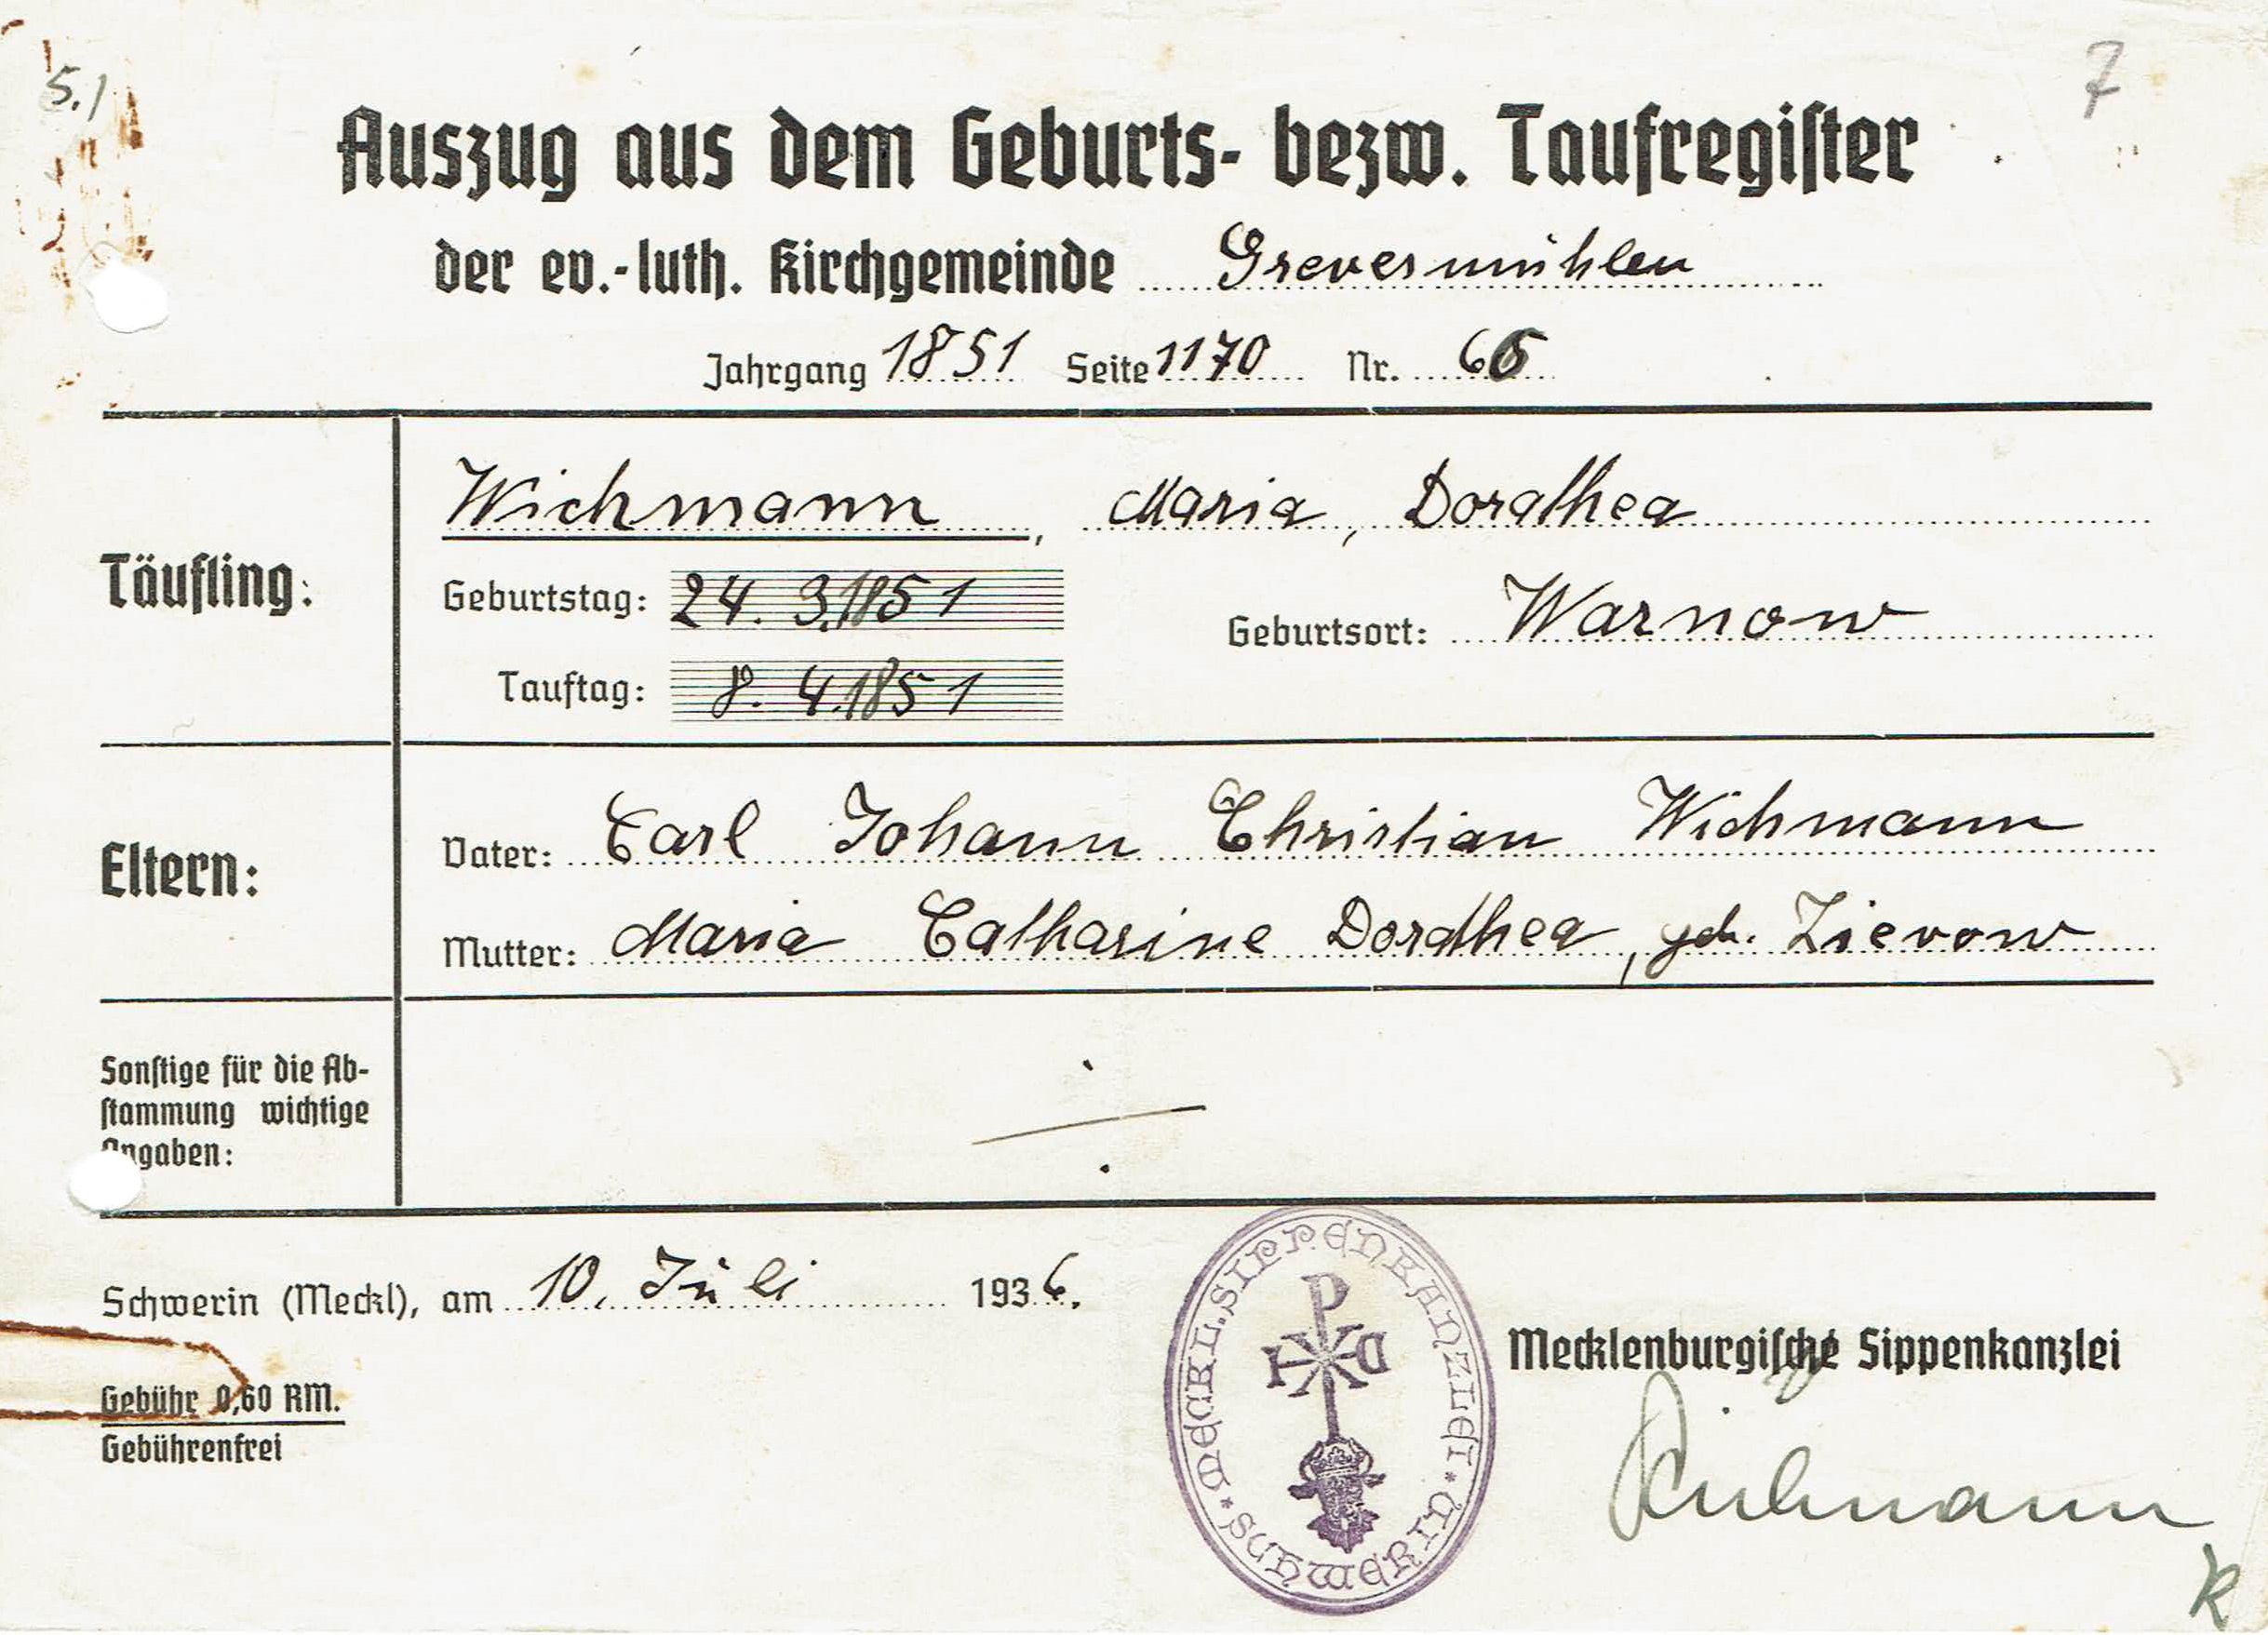 5.1
7
Auszug aus dem Geburts- bezw. Taufregiſter
der ev.-luth. Kirchgemeinde Grevesmühlen
Jahrgang 1851 Seite 1170 Nr. 65
Täufling:
Wichmann, Maria, Dorothea
Geburtstag: 24. 3.1851
Geburtsort: Warnow
Tauftag: 8. 4.1851
Eltern:
Vater: Carl Johann Christian Wichmann
Mutter: Maria Catharine Dorothea, geb. Zievow
Sonſtige für die Ab-
ſtammung wichtige
Angaben:
Schwerin (Meckl), am 10. Juli 1936.
MECKL. SIPPENKANZLEI * SCHWERIN *
Mecklenburgiſche Sippenkanzlei
Gebühr 0,60 RM.
Gebührenfrei
K